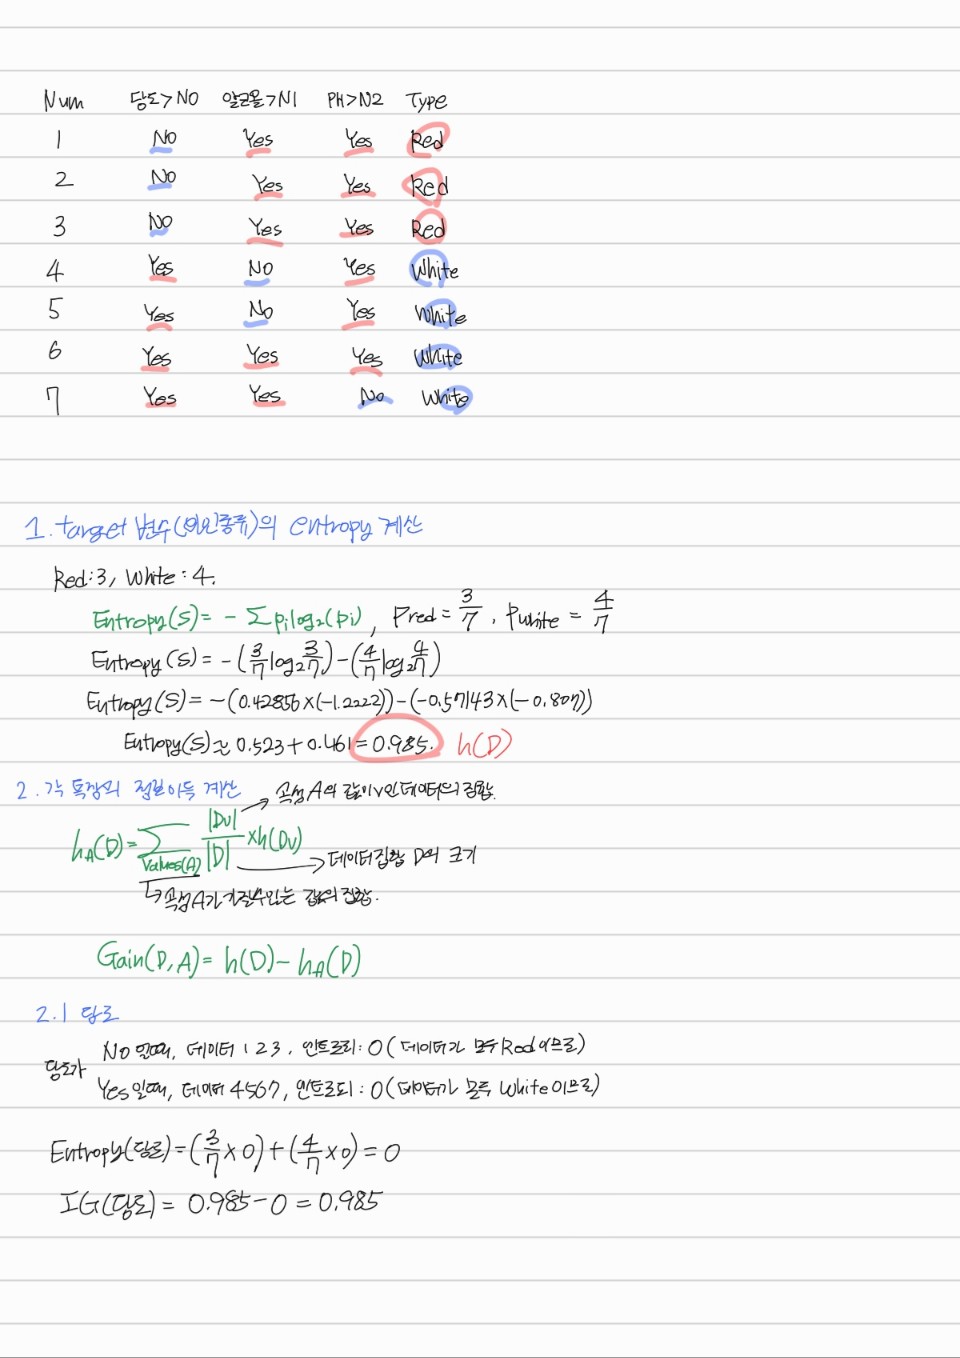 Num 당도>N0 알코올>N1 PH>N2 Type
1 No Yes Yes Red
2 No Yes Yes Red
3 No Yes Yes Red
4 Yes No Yes White
5 Yes No Yes White
6 Yes Yes Yes White
7 Yes Yes No White
1. target 변수(와인종류)의 entropy 계산
Red:3, White:4.
Entropy(S)= - ∑pilog₂(pi), Pred = 3/7, Pwhite = 4/7
Entropy(S)= -(3/7 log₂ 3/7)-(4/7 log₂ 4/7)
Entropy(S)= -(0.42856×(-1.2222))-(-0.57143×(-0.807))
Entropy(S)≈ 0.523+0.461=0.985. h(D)
2. 각 특징의 정보이득 계산
속성 A의 값이 v인 데이터의 집합.
hA(D)=∑Values(A) |Dv|/|D| ×h(Dv)
데이터집합 D의 크기
속성A가 가질수있는 값의 집합.
Gain(D,A)= h(D)-hA(D)
2.1 당도
당도가
No 일때, 데이터 1 2 3, 엔트로피: 0 (데이터가 모두 Red이므로)
Yes일때, 데이터 4567, 엔트로피: 0(데이터가 모두 White이므로)
Entropy(당도)=(3/7×0)+(4/7×0)=0
IG(당도)= 0.985-0=0.985